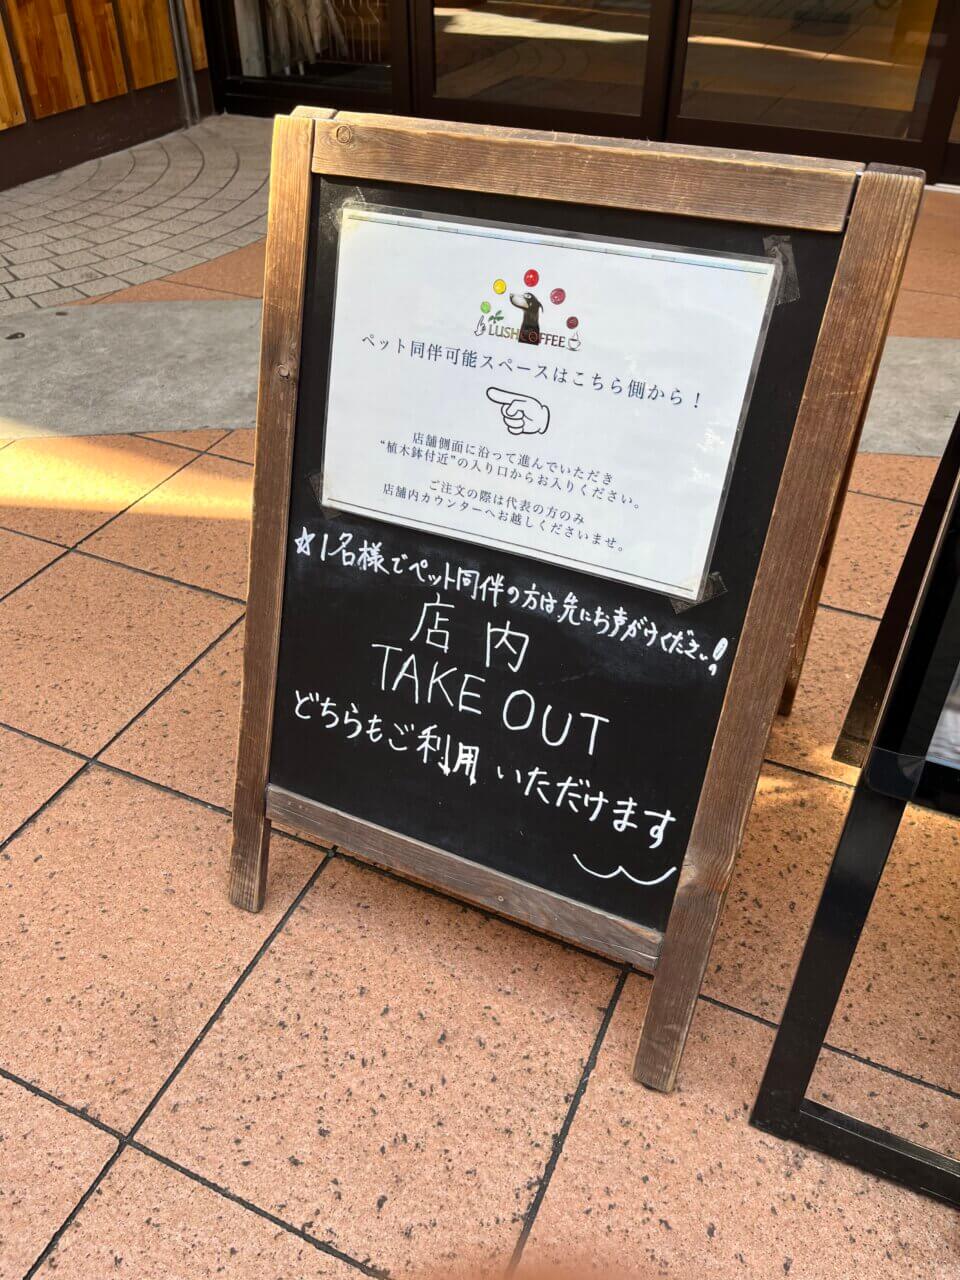 LUSH COFFEE
ペット同伴可能スペースはこちら側から！
店舗側面に沿って進んでいただき
“植木鉢付近”の入り口からお入りください。
ご注文の際は代表の方のみ
店舗内カウンターへお越しくださいませ。
☆1名様でペット同伴の方は先にお声がけください！
店内
TAKE OUT
どちらもご利用いただけます